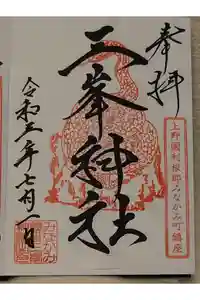 奉拝
上野國利根郡みなかみ町鎮座
三峯神社
令和三年七月一日
みなかみ